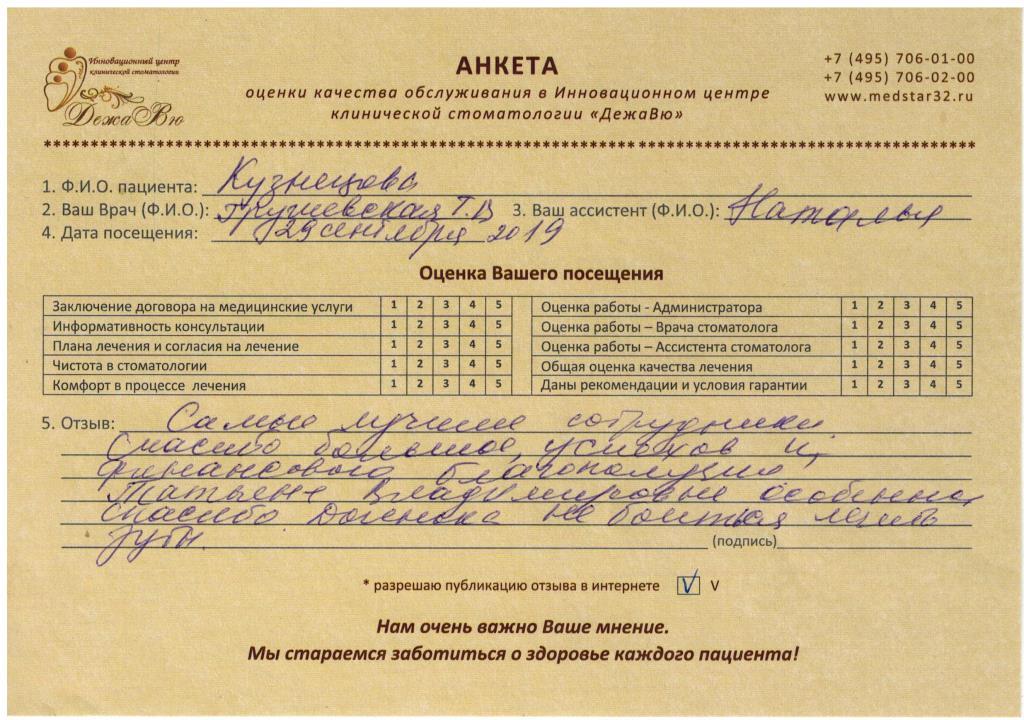 Инновационный центр
клинической стоматологии
ДежаВю
АНКЕТА
оценки качества обслуживания в Инновационном центре
клинической стоматологии «ДежаВю»
+7 (495) 706-01-00
+7 (495) 706-02-00
www.medstar32.ru
1. Ф.И.О. пациента: Кузнецова
2. Ваш Врач (Ф.И.О.): Грушевская Т.В 3. Ваш ассистент (Ф.И.О.): Наталья
4. Дата посещения: 29 сентября 2019
Оценка Вашего посещения
Заключение договора на медицинские услуги 1 2 3 4 5
Информативность консультации 1 2 3 4 5
Плана лечения и согласия на лечение 1 2 3 4 5
Чистота в стоматологии 1 2 3 4 5
Комфорт в процессе лечения 1 2 3 4 5
Оценка работы - Администратора 1 2 3 4 5
Оценка работы – Врача стоматолога 1 2 3 4 5
Оценка работы – Ассистента стоматолога 1 2 3 4 5
Общая оценка качества лечения 1 2 3 4 5
Даны рекомендации и условия гарантии 1 2 3 4 5
5. Отзыв: Самые лучшие сотрудники
Спасибо большое, успехов и
финансового благополучия,
Татьяне Владимировне особенно
спасибо Доченька не боится лечить
зубы.
(подпись)
* разрешаю публикацию отзыва в интернете V V
Нам очень важно Ваше мнение.
Мы стараемся заботиться о здоровье каждого пациента!